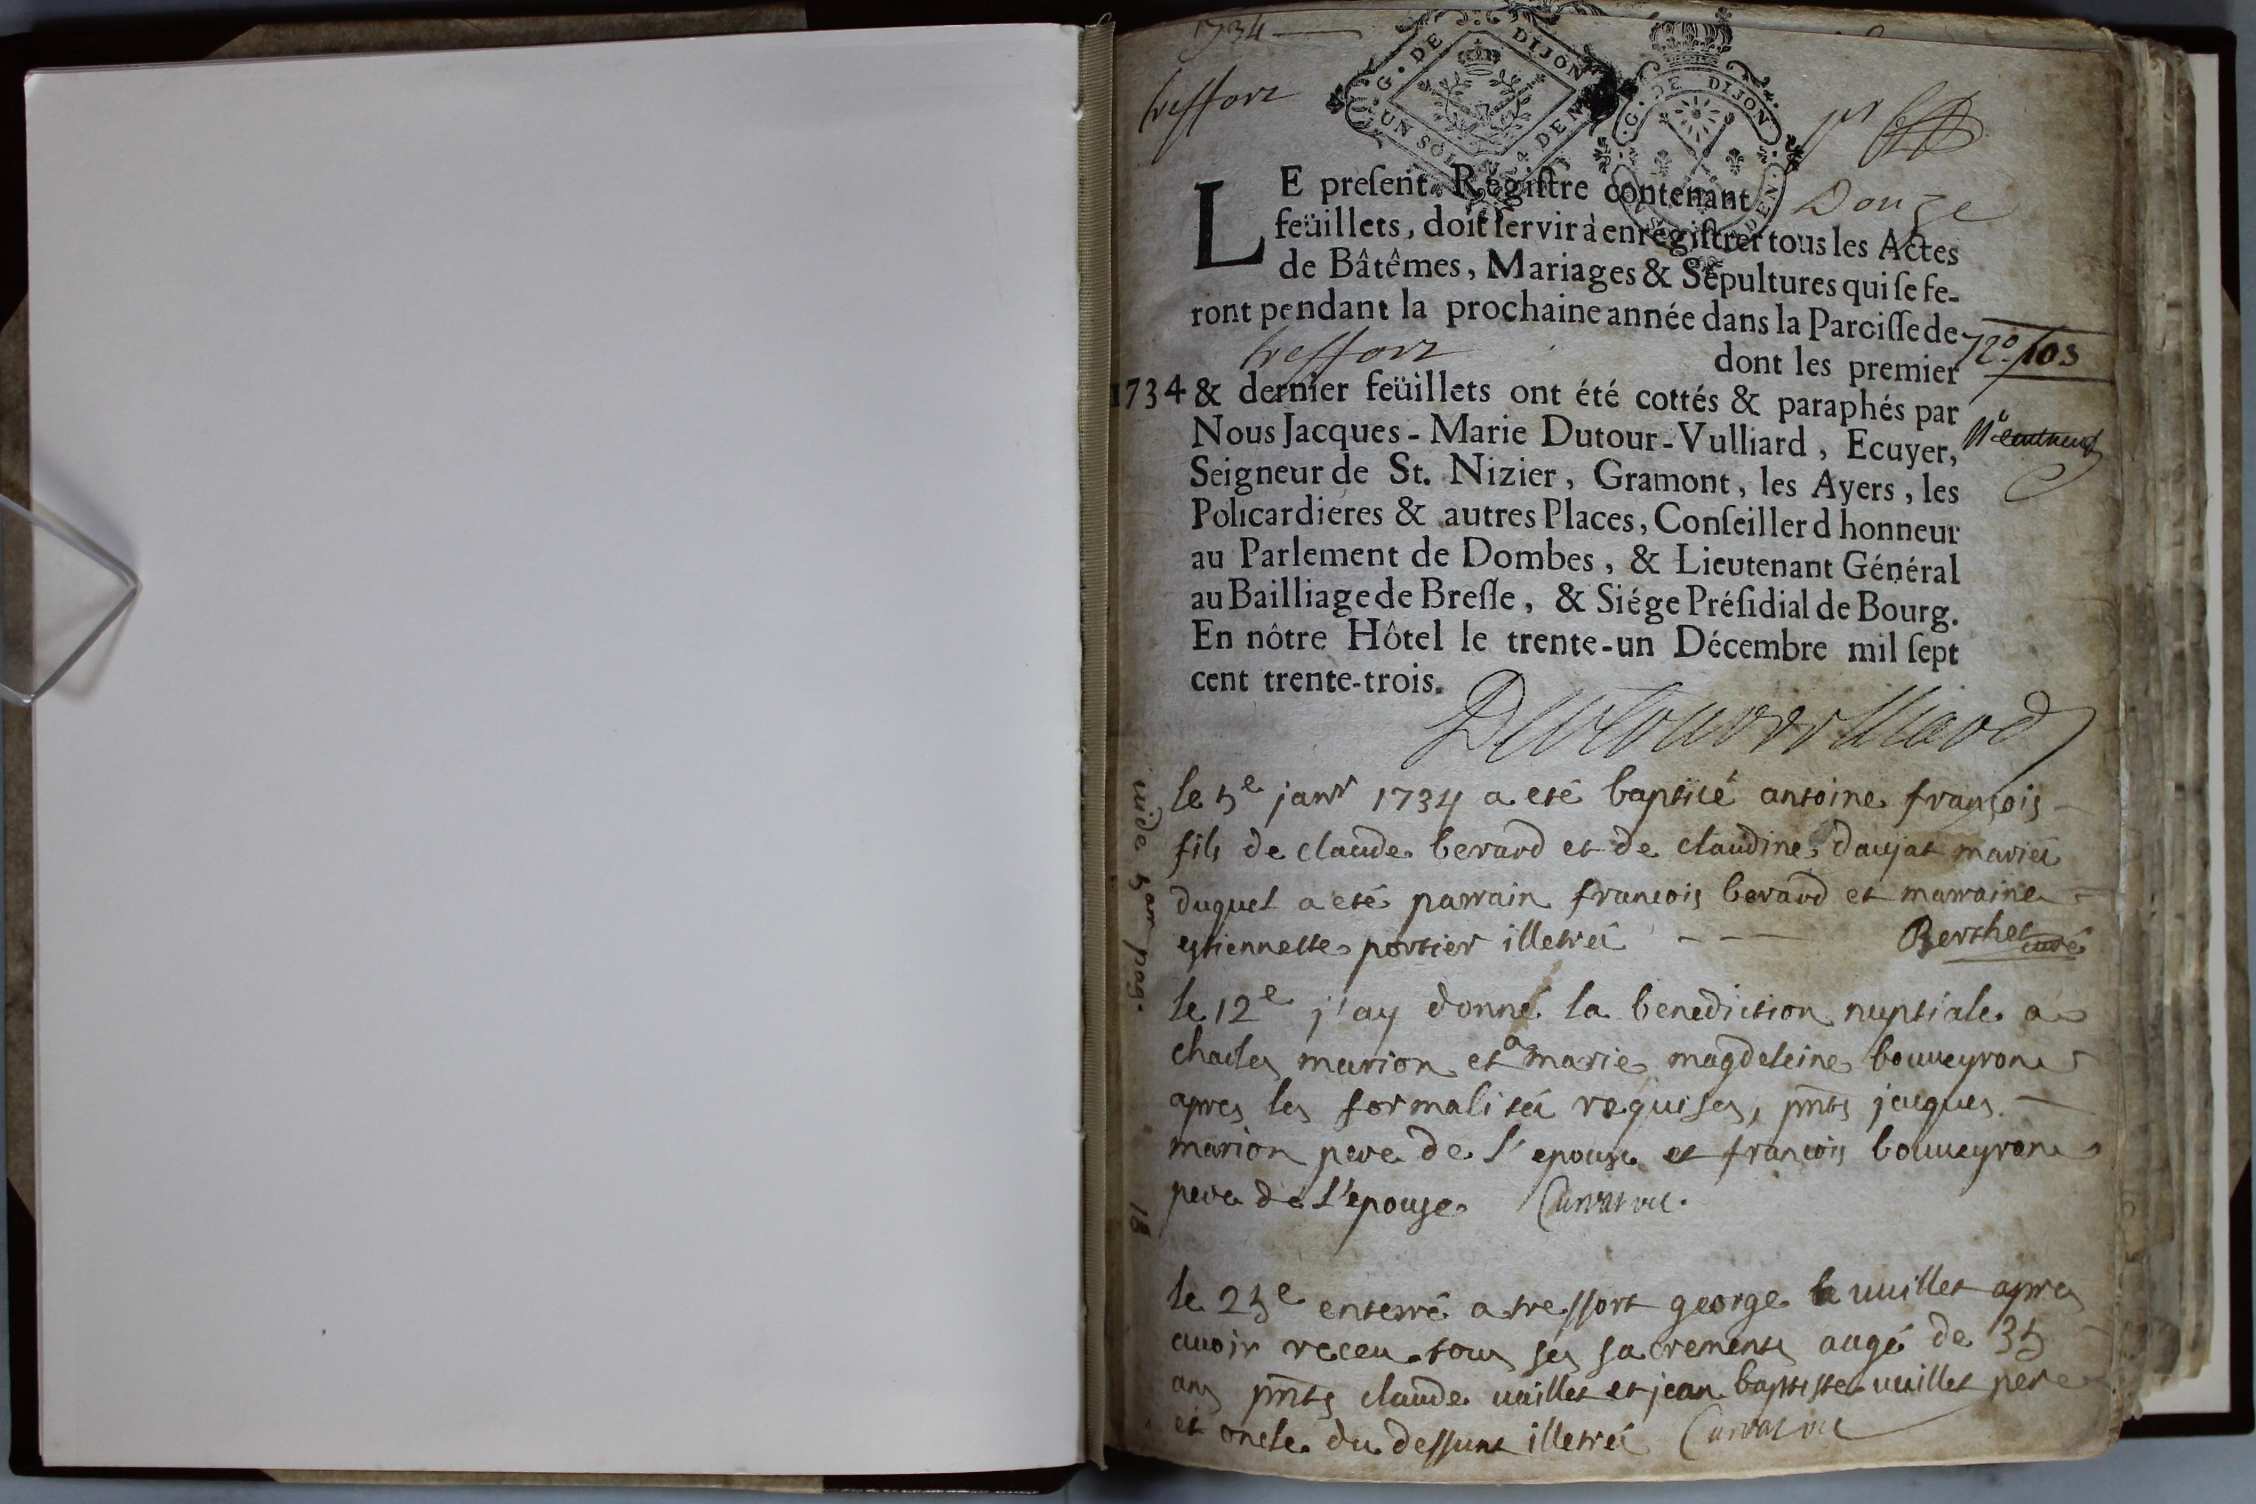 1734
treffort
G. DE DIJON
UN SOL 4 DEN
G. DE DIJON
DEN
pr
LE preſent Regiſtre contenant Douze
feüillets, doit ſervir à enregiſtrer tous les Actes
de Bâtêmes, Mariages & Sépultures qui ſe fe-
ront pendant la prochaine année dans la Paroiſſe de
treffort dont les premier
1734 & dernier feüillets ont été cottés & paraphés par
Nous Jacques-Marie Dutour-Vulliard, Ecuyer,
Seigneur de St. Nizier, Gramont, les Ayers, les
Policardieres & autres Places, Conſeiller d honneur
au Parlement de Dombes, & Lieutenant Général
au Bailliage de Breſſe, & Siége Préſidial de Bourg.
En nôtre Hôtel le trente-un Décembre mil ſept
cent trente-trois.
120/103
Dutourvulliard
le 5e janr 1734 a eté baptisé antoine françois
fils de claude berard et de claudine daujat mariés
duquel a eté parrain francois berard et marraine
estiennette portier illetrés Berthet curé
le 12e j'ay donné la benediction nuptiale a
charles marion et a marie magdeleine bouueyron
apres les formalités requises, pnts jacques
marion pere de l'epoux et francois bouueyron
pere de l'epouse. Carvat vic.
le 25e enterré a treffort george vuillet apres
auoir receu tous ses sacrements aagé de 35
ans pnts claude vuillet et jean baptiste vuillet pere
et oncle du deffunt illetrés Carvat vic
vide 5am pag.
18